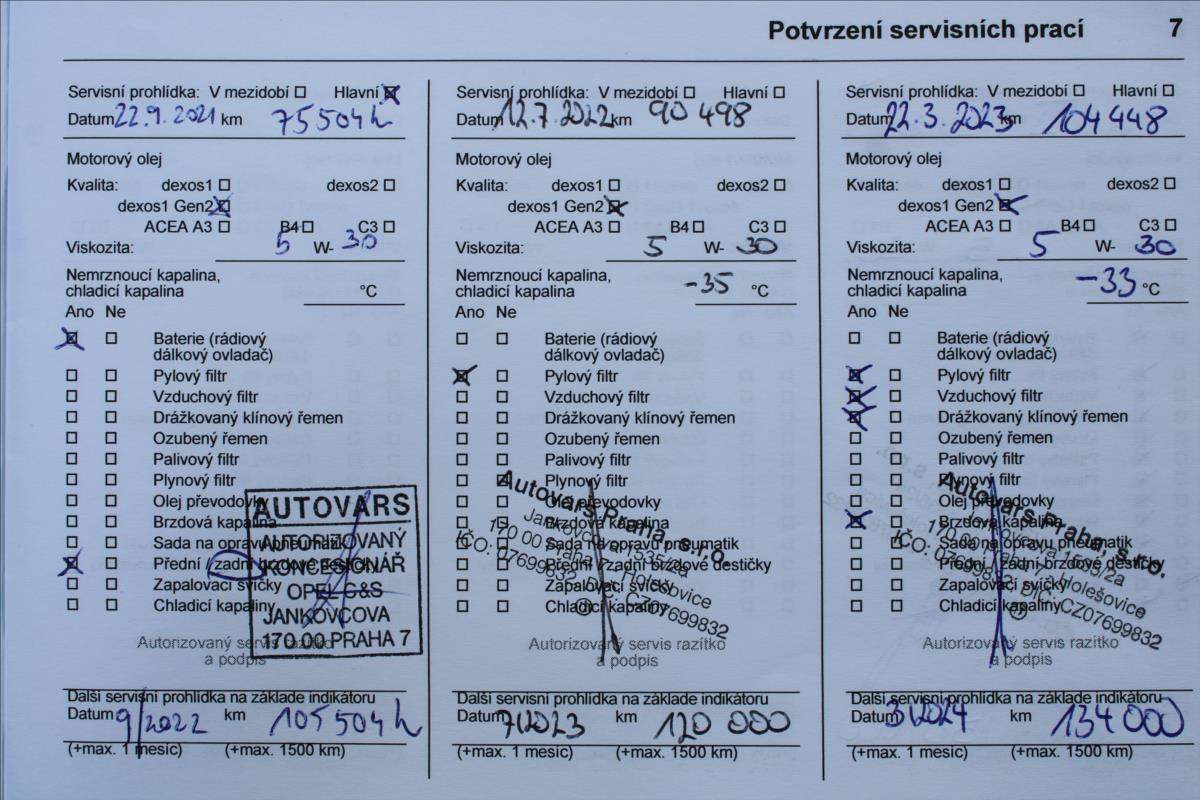 Potvrzení servisních prací 7
Servisní prohlídka: V mezidobí Hlavní
Datum 22.9.2021 km 75504
Motorový olej
Kvalita: dexos1 dexos2
dexos1 Gen2
ACEA A3 B4 C3
Viskozita: 5 W- 30
Nemrznoucí kapalina,
chladicí kapalina °C
Ano Ne
Baterie (rádiový
dálkový ovladač)
Pylový filtr
Vzduchový filtr
Drážkovaný klínový řemen
Ozubený řemen
Palivový filtr
Plynový filtr
Olej převodovky
Brzdová kapalina
Sada na opravu pneumatik
Přední / zadní brzdové destičky
Zapalovací svíčky
Chladicí kapaliny
AUTOVARS
AUTORIZOVANÝ
KONCESIONÁŘ
OPEL G&S
JANKOVCOVA
170 00 PRAHA 7
Autorizovaný servis razítko
a podpis
Další servisní prohlídka na základe indikátoru
Datum 9/2022 km 105504
(+max. 1 mesíc) (+max. 1500 km)
Servisní prohlídka: V mezidobí Hlavní
Datum 12.7.2022 km 90 498
Motorový olej
Kvalita: dexos1 dexos2
dexos1 Gen2
ACEA A3 B4 C3
Viskozita: 5 W- 30
Nemrznoucí kapalina,
chladicí kapalina -35 °C
Ano Ne
Baterie (rádiový
dálkový ovladač)
Pylový filtr
Vzduchový filtr
Drážkovaný klínový řemen
Ozubený řemen
Palivový filtr
Plynový filtr
Olej převodovky
Brzdová kapalina
Sada na opravu pneumatik
Přední / zadní brzdové destičky
Zapalovací svíčky
Chladicí kapaliny
Autovars Praha, s.r.o.
Jankovcova 1635/2a
170 00 Praha 7 Holešovice
IČO: 07699832 DIČ: CZ07699832
Autorizovaný servis razítko
a podpis
Další servisní prohlídka na základe indikátoru
Datum 7/2023 km 120 000
(+max. 1 mesíc) (+max. 1500 km)
Servisní prohlídka: V mezidobí Hlavní
Datum 22.3.2023 km 104 448
Motorový olej
Kvalita: dexos1 dexos2
dexos1 Gen2
ACEA A3 B4 C3
Viskozita: 5 W- 30
Nemrznoucí kapalina,
chladicí kapalina -33 °C
Ano Ne
Baterie (rádiový
dálkový ovladač)
Pylový filtr
Vzduchový filtr
Drážkovaný klínový řemen
Ozubený řemen
Palivový filtr
Plynový filtr
Olej převodovky
Brzdová kapalina
Sada na opravu pneumatik
Přední / zadní brzdové destičky
Zapalovací svíčky
Chladicí kapaliny
Autovars Praha, s.r.o.
Jankovcova 1635/2a
170 00 Praha 7 Holešovice
IČO: 07699832 DIČ: CZ07699832
Autorizovaný servis razítko
a podpis
Další servisní prohlídka na základe indikátoru
Datum 3/2024 km 134 000
(+max. 1 mesíc) (+max. 1500 km)